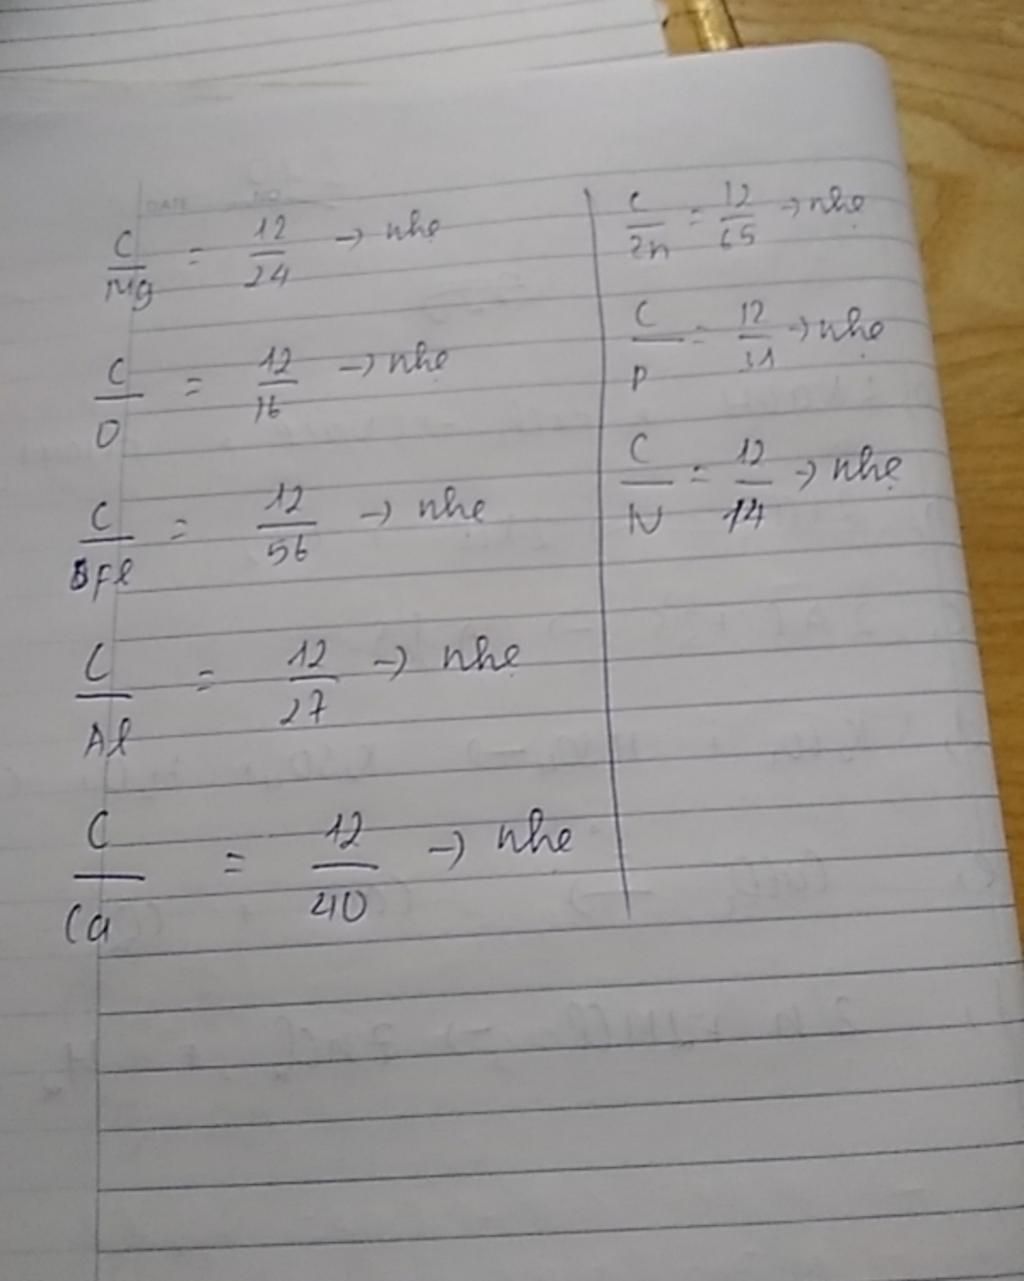 DATE NO
C/Mg = 12/24 → nhẹ
C/O = 12/16 → nhẹ
C/Fe = 12/56 → nhẹ
C/Al = 12/27 → nhẹ
C/Ca = 12/40 → nhẹ
C/Zn = 12/65 → nhẹ
C/P = 12/31 → nhẹ
C/N = 12/14 → nhẹ